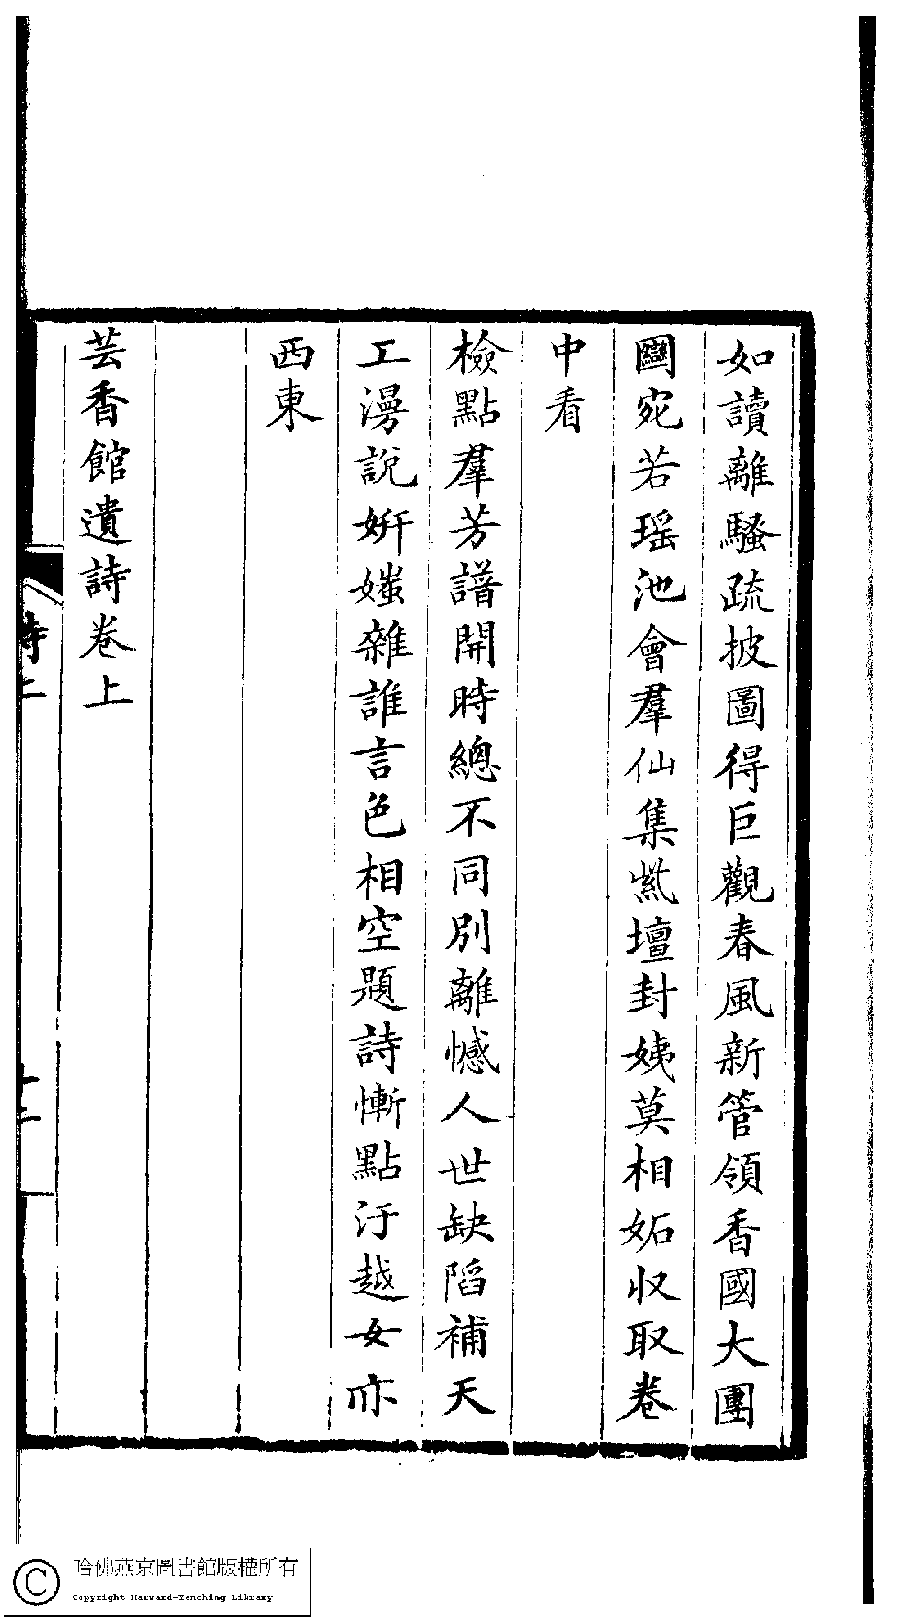 如讀離騷疏披圖得巨觀春風新管領香國大團
圞宛若瑶池會羣仙集紫壇封姨莫相妬収取卷
中看
檢點羣芳譜開時總不同別離憾人世缺陷補天
工漫說妍媸雜誰言色相空題詩慚點汙越女亦
西東
芸香館遺詩卷上
詩上
十二
哈佛燕京圖書館版權所有
Copyright Harvard-Yenching Library